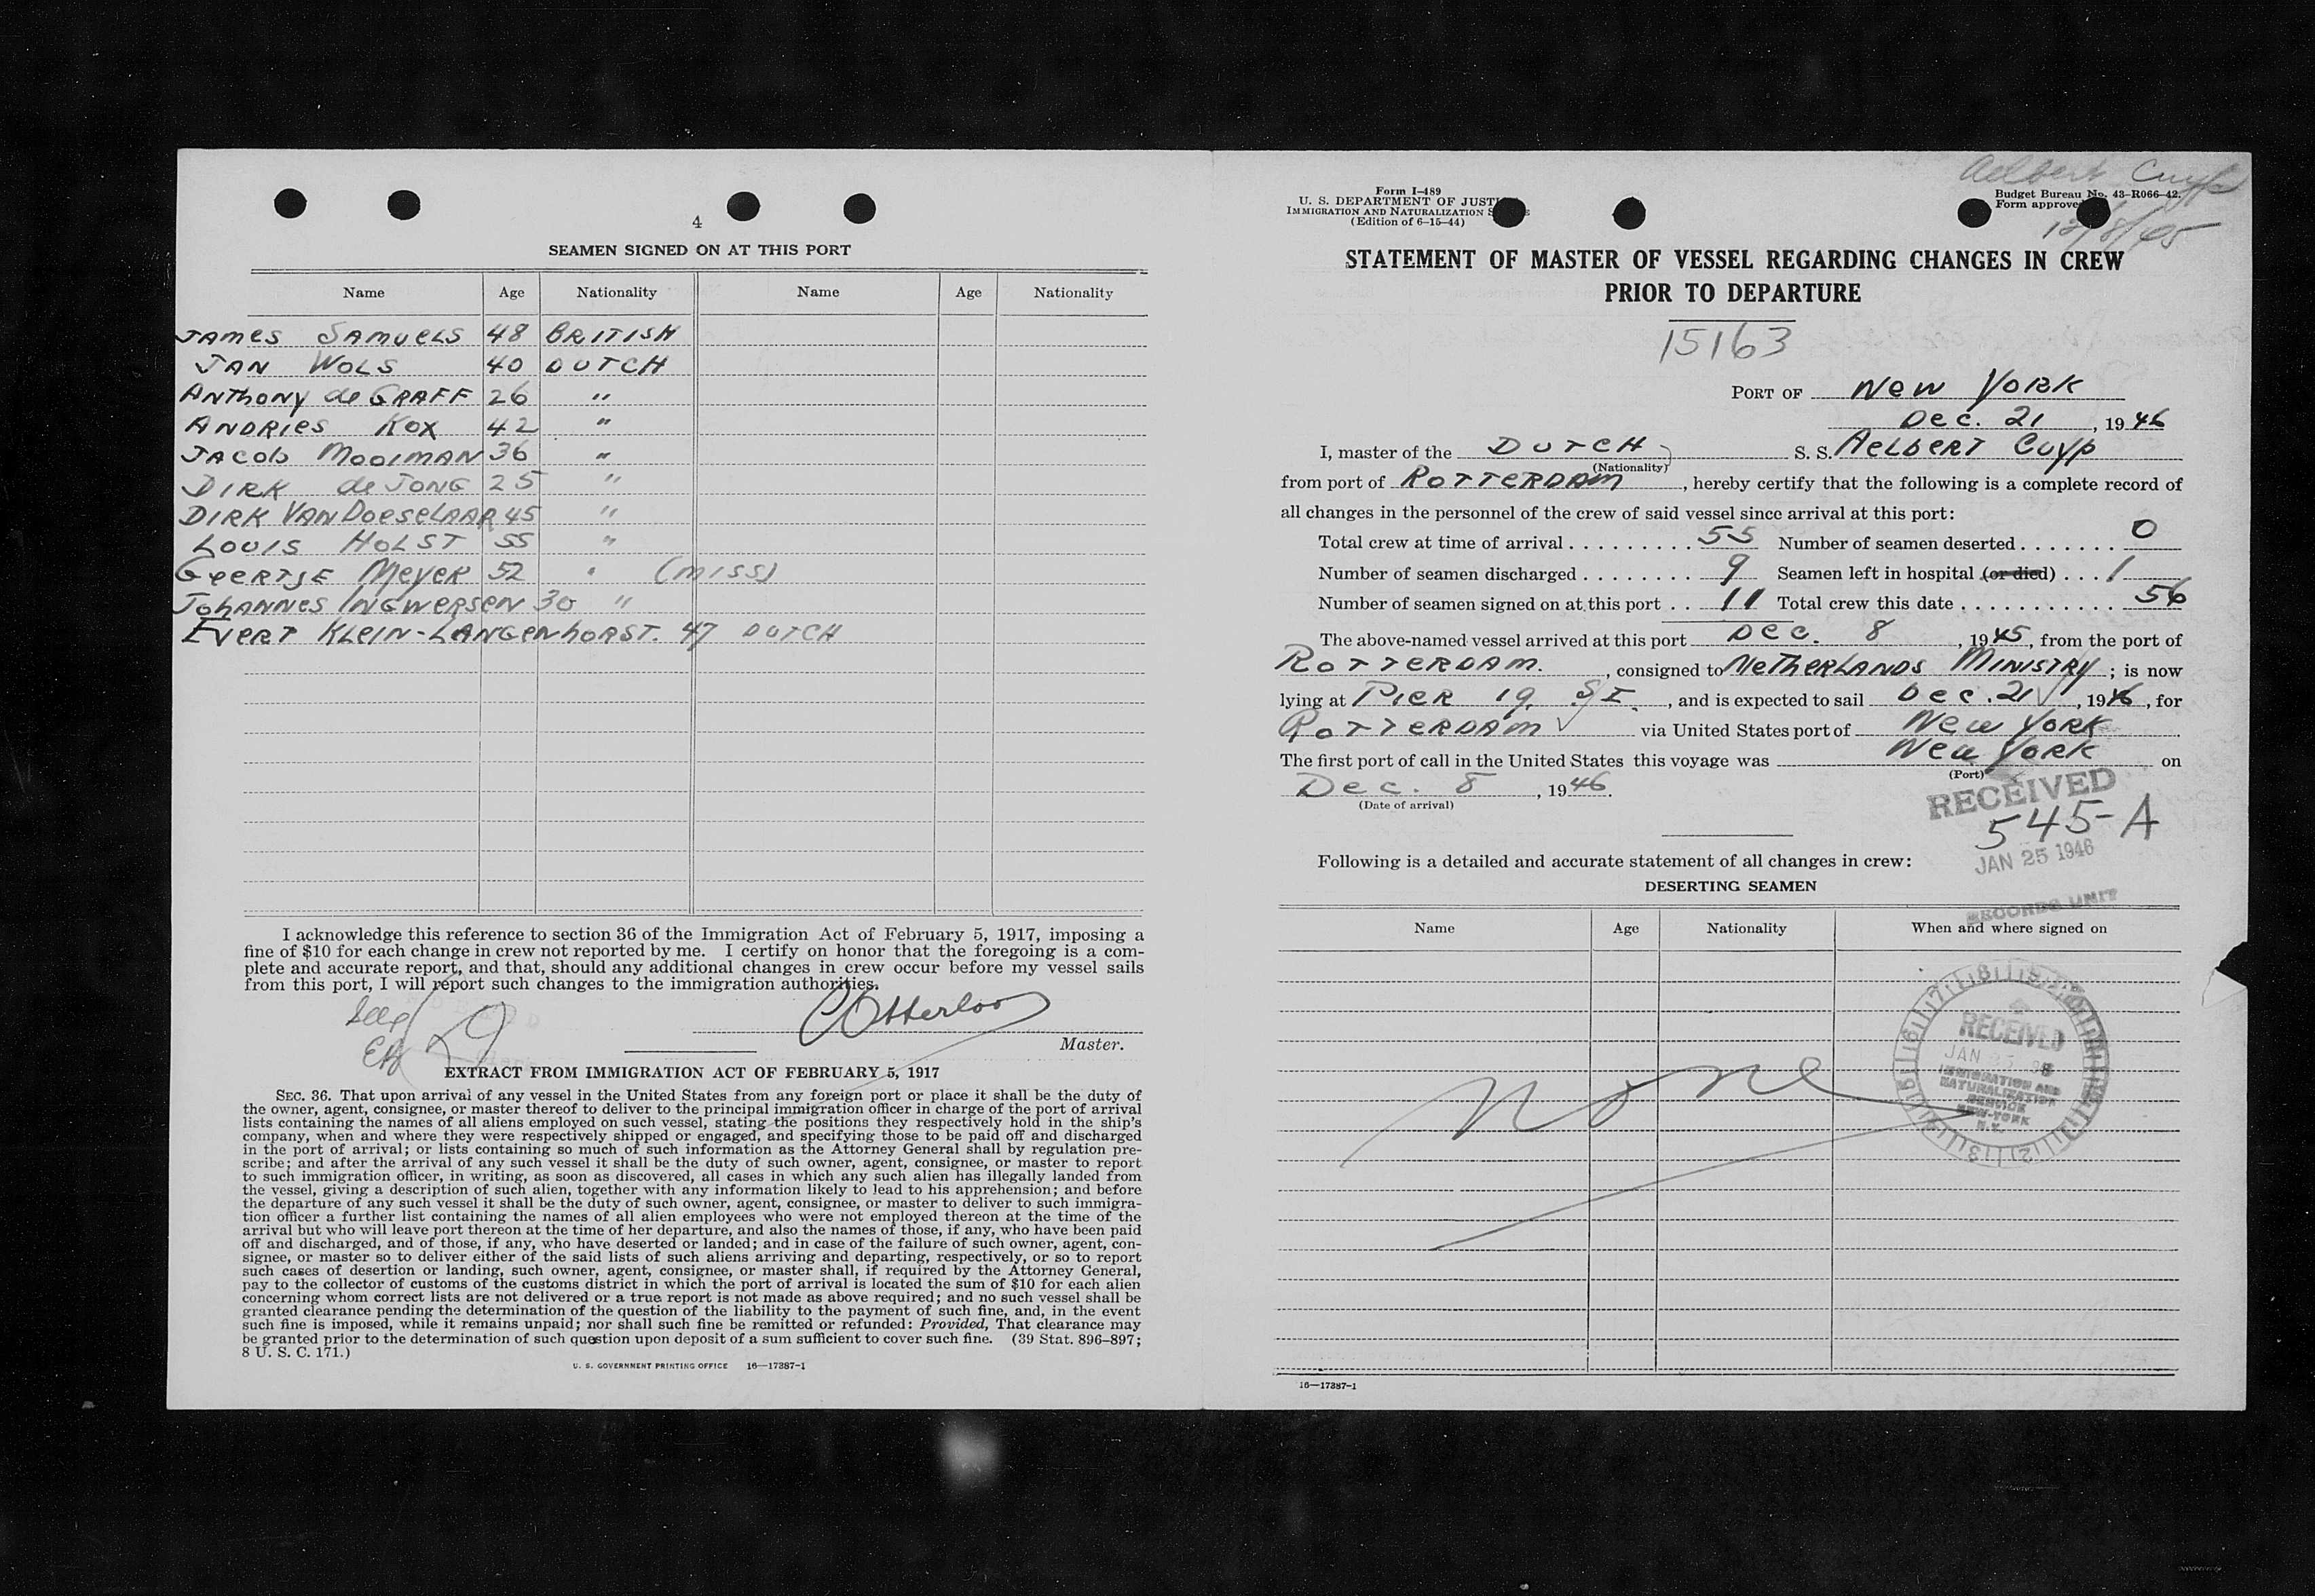 4
SEAMEN SIGNED ON AT THIS PORT
Name Age Nationality Name Age Nationality
JAMES SAMUELS 48 BRITISH
JAN WOLS 40 DUTCH
ANTHONY de GRAFF 26 "
ANDRIES KOX 42 "
JACOB MOOIMAN 36 "
DIRK de JONG 25 "
DIRK VAN DOESELAAR 45 "
LOUIS HOLST 55 "
GEERTJE MEYER 52 " (MISS)
JOHANNES INGWERSEN 30 "
EVERT KLEIN-LANGENHORST. 47 DUTCH
I acknowledge this reference to section 36 of the Immigration Act of February 5, 1917, imposing a
fine of $10 for each change in crew not reported by me. I certify on honor that the foregoing is a com-
plete and accurate report, and that, should any additional changes in crew occur before my vessel sails
from this port, I will report such changes to the immigration authorities.
COtterloo
Master.
EXTRACT FROM IMMIGRATION ACT OF FEBRUARY 5, 1917
SEC. 36. That upon arrival of any vessel in the United States from any foreign port or place it shall be the duty of
the owner, agent, consignee, or master thereof to deliver to the principal immigration officer in charge of the port of arrival
lists containing the names of all aliens employed on such vessel, stating the positions they respectively hold in the ship's
company, when and where they were respectively shipped or engaged, and specifying those to be paid off and discharged
in the port of arrival; or lists containing so much of such information as the Attorney General shall by regulation pre-
scribe; and after the arrival of any such vessel it shall be the duty of such owner, agent, consignee, or master to report
to such immigration officer, in writing, as soon as discovered, all cases in which any such alien has illegally landed from
the vessel, giving a description of such alien, together with any information likely to lead to his apprehension; and before
the departure of any such vessel it shall be the duty of such owner, agent, consignee, or master to deliver to such immigra-
tion officer a further list containing the names of all alien employees who were not employed thereon at the time of the
arrival but who will leave port thereon at the time of her departure, and also the names of those, if any, who have been paid
off and discharged, and of those, if any, who have deserted or landed; and in case of the failure of such owner, agent, con-
signee, or master so to deliver either of the said lists of such aliens arriving and departing, respectively, or so to report
such cases of desertion or landing, such owner, agent, consignee, or master shall, if required by the Attorney General,
pay to the collector of customs of the customs district in which the port of arrival is located the sum of $10 for each alien
concerning whom correct lists are not delivered or a true report is not made as above required; and no such vessel shall be
granted clearance pending the determination of the question of the liability to the payment of such fine, and, in the event
such fine is imposed, while it remains unpaid; nor shall such fine be remitted or refunded: Provided, That clearance may
be granted prior to the determination of such question upon deposit of a sum sufficient to cover such fine. (39 Stat. 896–897;
8 U. S. C. 171.)
U. S. GOVERNMENT PRINTING OFFICE 16—17387-1
Aelbert Cuyp
12/8/45
Form I-489
U. S. DEPARTMENT OF JUSTI
IMMIGRATION AND NATURALIZATION S
(Edition of 6-15-44)
Budget Bureau No. 43-R066-42.
Form approve
STATEMENT OF MASTER OF VESSEL REGARDING CHANGES IN CREW
PRIOR TO DEPARTURE
15163
PORT OF NEW YORK
DEC. 21, 1946
I, master of the DUTCH S. S. AELBERT CUYP
(Nationality)
from port of ROTTERDAM, hereby certify that the following is a complete record of
all changes in the personnel of the crew of said vessel since arrival at this port:
Total crew at time of arrival . . . . . . . . . 55 Number of seamen deserted . . . . . . . 0
Number of seamen discharged . . . . . . . . 9 Seamen left in hospital (or died) . . . 1
Number of seamen signed on at this port . . 11 Total crew this date . . . . . . . . . . . . 56
The above-named vessel arrived at this port DEC. 8, 1945, from the port of
ROTTERDAM., consigned to NETHERLANDS MINISTRY; is now
lying at PIER 19. S I., and is expected to sail DEC. 21, 1946, for
ROTTERDAM via United States port of NEW YORK.
The first port of call in the United States this voyage was NEW YORK on
(Port)
DEC. 8, 1946.
(Date of arrival)
RECEIVED
545-A
JAN 25 1946
RECORDS UNIT
Following is a detailed and accurate statement of all changes in crew:
DESERTING SEAMEN
Name Age Nationality When and where signed on
None
RECEIVED
JAN
IMMIGRATION AND
NATURALIZATION
SERVICE
NEW-YORK
N.Y.
16—17387-1